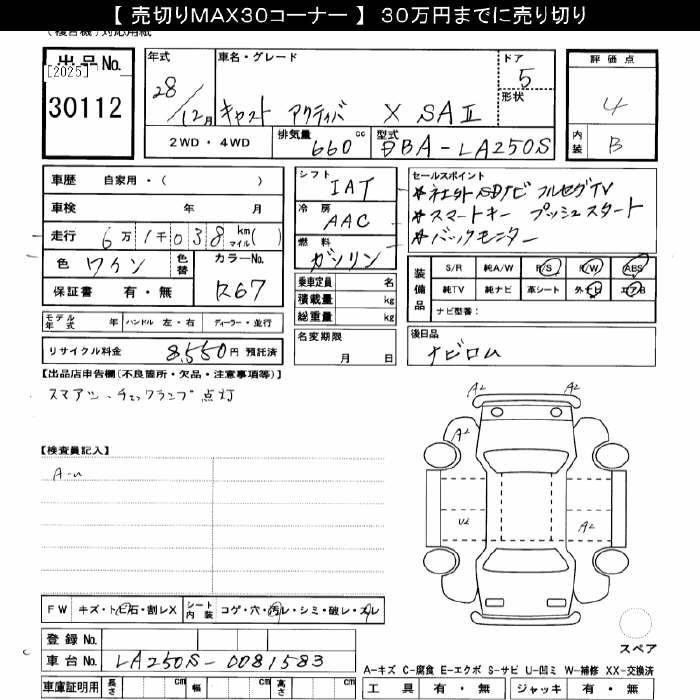 【 売切りMAX30コーナー 】 30万円までに売り切り
(複合機)対応用紙
出品No.
[2025]
30112
年式 28/12月
車名・グレード
キャスト アクティバ X SAⅡ
ドア 5
形状
評価点 4
内装 B
2WD・4WD
排気量 660 cc
型式 DBA-LA250S
車歴 自家用・( )
車検 年 月
走行 6万1千038 km マイル( )
色 ワイン 色替
カラーNo. R67
保証書 有・無
シフト IAT
冷房 AAC
燃料 ガソリン
乗車定員 名
積載量 kg
総重量 kg
セールスポイント
*社外SDナビ フルセグTV
*スマートキー プッシュスタート
*バックモニター
装備品
S/R 純A/W P/S P/W ABS
純TV 純ナビ 革シート 外ナビ エアB
ナビ型番:
モデル年式 年 ハンドル 左・右 ディーラー・並行
リサイクル料金 8,550円 預託済
名変期限 月 日
後日品
ナビロム
【出品店申告欄(不良箇所・欠品・注意事項等)】
スマアシ・チェックランプ点灯
【検査員記入】
A-u
A2 A2
A2
U2
A2
FW キズ・トビ石・割レX
シート内装 コゲ・穴・汚レ・シミ・破レ・スレ
登録No.
車台No. LA250S-0081583
車庫証明用 長さ cm 幅 cm 高さ cm
スペア
A-キズ C-腐食 E-エクボ S-サビ U-凹ミ W-補修 XX-交換済
工具 有・無 ジャッキ 有・無